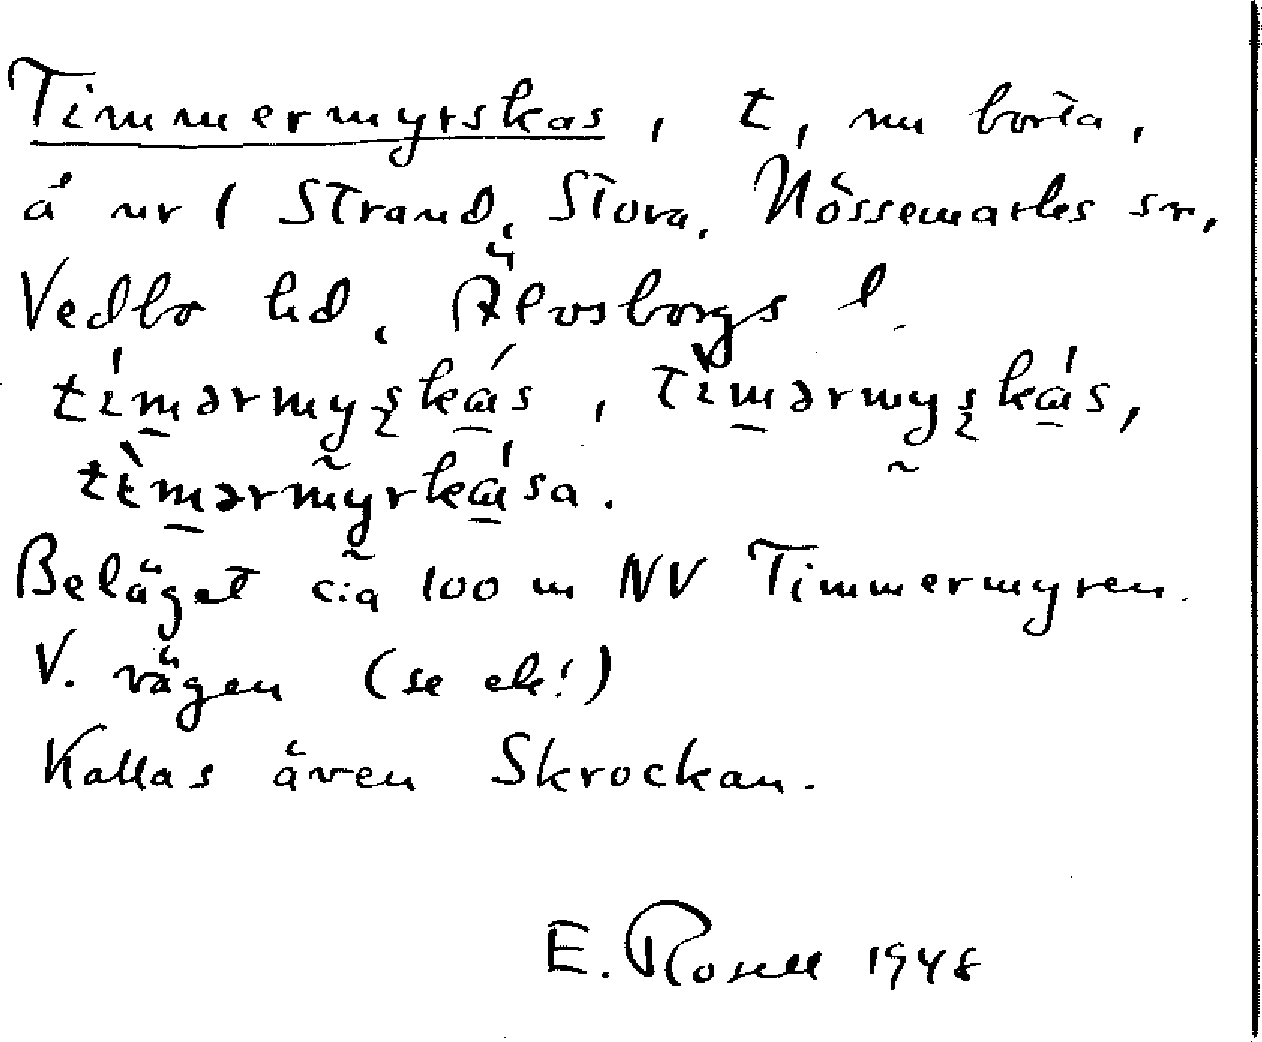 Timmermyrskas, t, nu borta,
å nr 1 Strand, Stora, Nössemarks sn,
Vedbo hd, Älvsborgs l.
Beläget c:a 100 m NV Timmermyren.
V. vägen (se ek!)
Kallas även Skrockan.
E. Rosell 1948